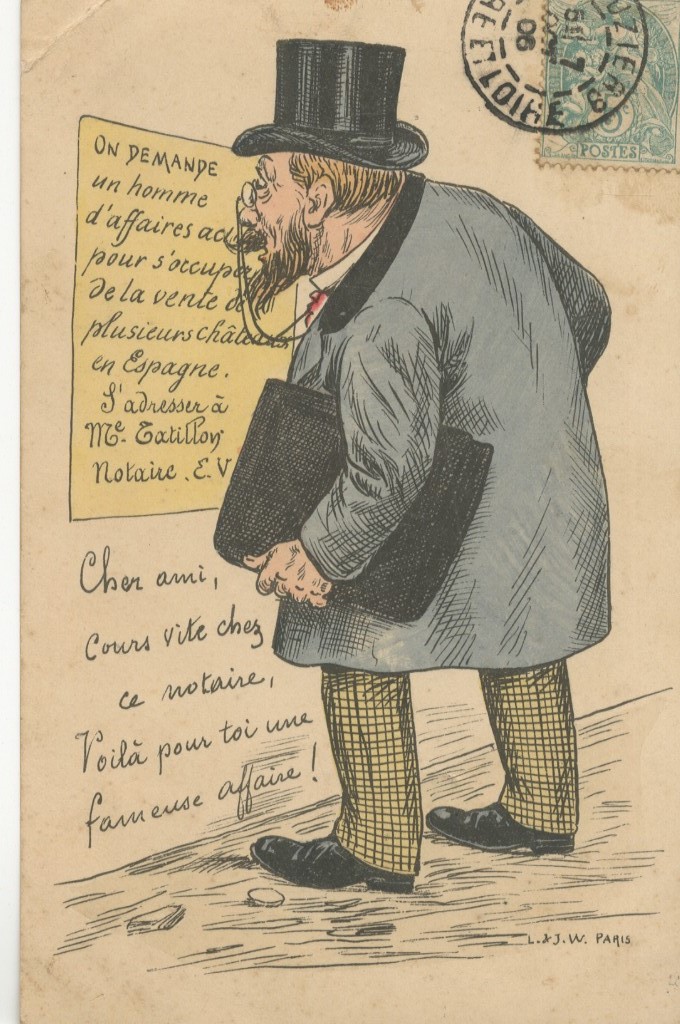 ON DEMANDE
un homme
d'affaires
pour s'occuper
de la vente de
plusieurs châteaux
en Espagne.
S'adresser à
Me. Tatillon
Notaire. E. V
Cher ami,
Cours vite chez
ce notaire,
Voilà pour toi une
fameuse affaire!
L. & J. W. PARIS
06
EURE ET LOIRE
5
POSTES